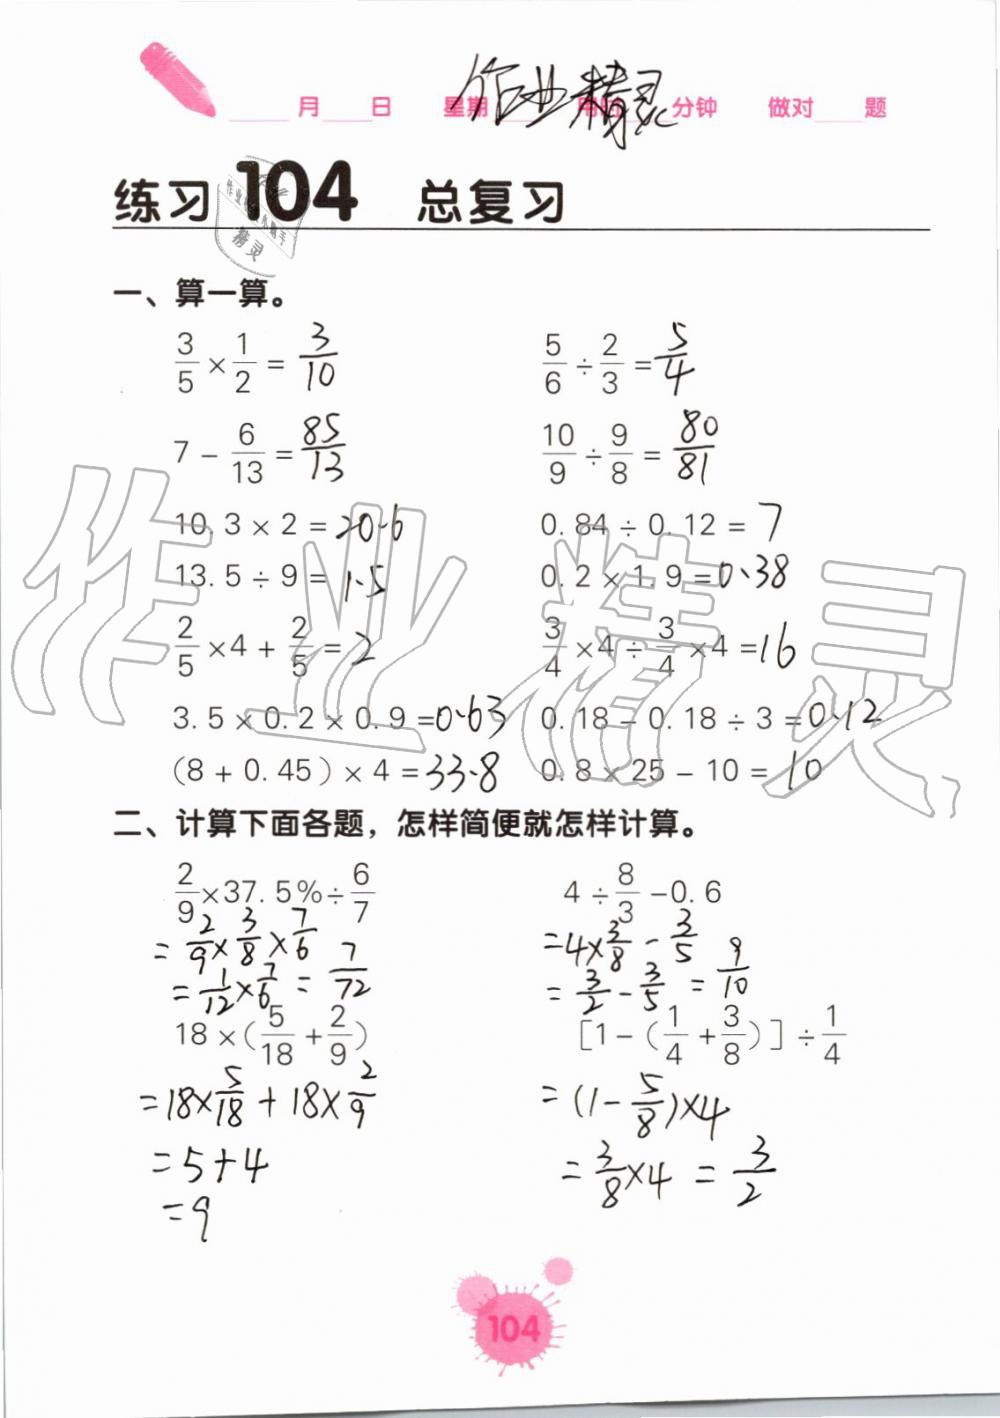 作业精灵
___月___日 星期___ 用时___分钟 做对___题
练习104 总复习
一、算一算。
3/5 × 1/2 = 3/10    5/6 ÷ 2/3 = 5/4
7 - 6/13 = 85/13    10/9 ÷ 9/8 = 80/81
10.3 × 2 = 20.6    0.84 ÷ 0.12 = 7
13.5 ÷ 9 = 1.5    0.2 × 1.9 = 0.38
2/5 × 4 + 2/5 = 2    3/4 × 4 ÷ 3/4 × 4 = 16
3.5 × 0.2 × 0.9 = 0.63    0.18 - 0.18 ÷ 3 = 0.12
(8 + 0.45) × 4 = 33.8    0.8 × 25 - 10 = 10
二、计算下面各题，怎样简便就怎样计算。
2/9 × 37.5% ÷ 6/7    4 ÷ 8/3 - 0.6
= 2/9 × 3/8 × 7/6    = 4 × 3/8 - 3/5
= 1/12 × 7/6 = 7/72    = 3/2 - 3/5 = 9/10
18 × (5/18 + 2/9)    [1 - (1/4 + 3/8)] ÷ 1/4
= 18 × 5/18 + 18 × 2/9    = (1 - 5/8) × 4
= 5 + 4    = 3/8 × 4 = 3/2
= 9
104
作业精灵